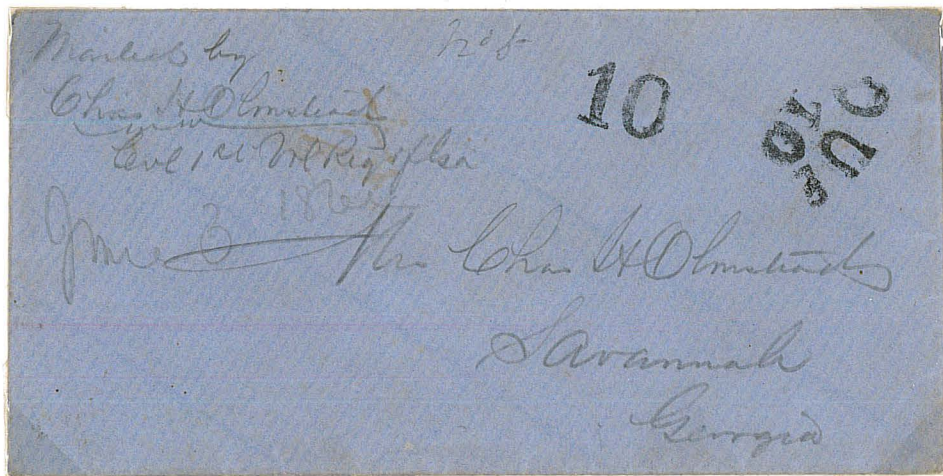 Mailed by
No 5
Chas H Olmstead
Col 1st Vol Reg of Ga
June 3 186
10
DUE
10
Mrs Chas H Olmstead
Savannah
Georgia